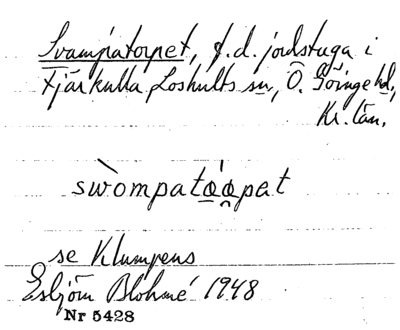 Svampatorpet, f.d. jordstuga i
Tjärkulla Loshults sn, Ö. Göinge hd,
Kr. län.
swòmpatǫ́ǫpat
se Klumpens
Esbjörn Blohmé 1948
Nr 5428